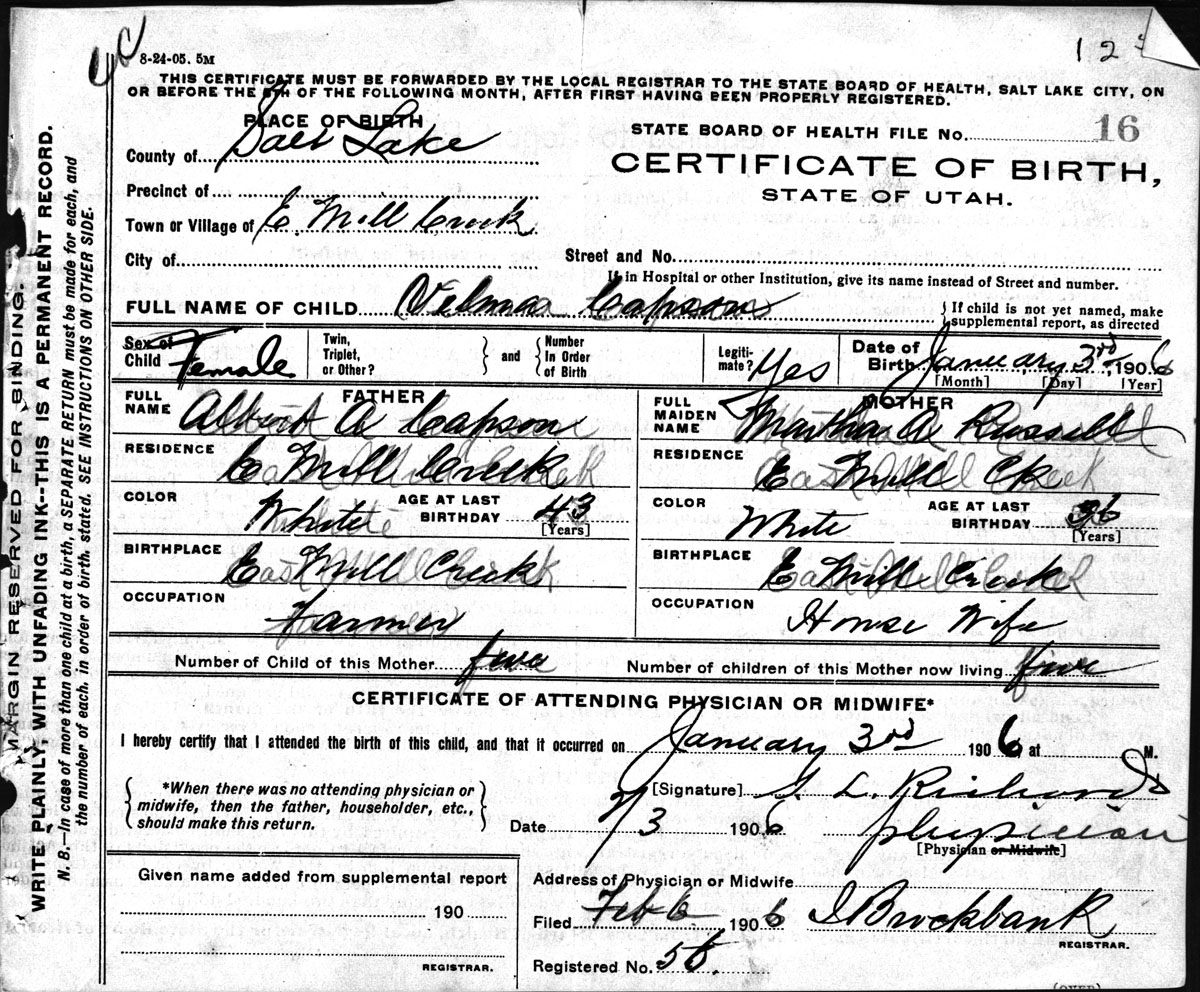 8-24-05. 5M
12
THIS CERTIFICATE MUST BE FORWARDED BY THE LOCAL REGISTRAR TO THE STATE BOARD OF HEALTH, SALT LAKE CITY, ON
OR BEFORE THE 5TH OF THE FOLLOWING MONTH, AFTER FIRST HAVING BEEN PROPERLY REGISTERED.
PLACE OF BIRTH
STATE BOARD OF HEALTH FILE No. 16
County of Salt Lake
CERTIFICATE OF BIRTH,
STATE OF UTAH.
Precinct of
Town or Village of E. Mill Creek
City of
Street and No.
If in Hospital or other Institution, give its name instead of Street and number.
FULL NAME OF CHILD Velma Capson
If child is not yet named, make
supplemental report, as directed
Sex of
Child Female
Twin,
Triplet,
or Other?
and
Number
In Order
of Birth
Legiti-
mate? Yes
Date of
Birth January 3rd, 1906
[Month] [Day] [Year]
FATHER
FULL
NAME Albert A Capson
RESIDENCE E Mill Creek
COLOR White
AGE AT LAST
BIRTHDAY 43
[Years]
BIRTHPLACE E Mill Creek
OCCUPATION Farmer
MOTHER
FULL
MAIDEN
NAME Martha A Russell
RESIDENCE E Mill Ck
COLOR White
AGE AT LAST
BIRTHDAY
[Years]
BIRTHPLACE E Mill Creek
OCCUPATION House Wife
Number of Child of this Mother five
Number of children of this Mother now living five
CERTIFICATE OF ATTENDING PHYSICIAN OR MIDWIFE*
I hereby certify that I attended the birth of this child, and that it occurred on January 3rd 1906 at M.
*When there was no attending physician or
midwife, then the father, householder, etc.,
should make this return.
[Signature] L. Richards
Date 1906 physician
[Physician or Midwife]
Given name added from supplemental report
190
REGISTRAR.
Address of Physician or Midwife
Filed Feb 6 1906 Brockbank
REGISTRAR.
Registered No.
(OVER)
MARGIN RESERVED FOR BINDING.
WRITE PLAINLY, WITH UNFADING INK--THIS IS A PERMANENT RECORD.
N. B.—In case of more than one child at a birth, a SEPARATE RETURN must be made for each, and
the number of each, in order of birth, stated. SEE INSTRUCTIONS ON OTHER SIDE.